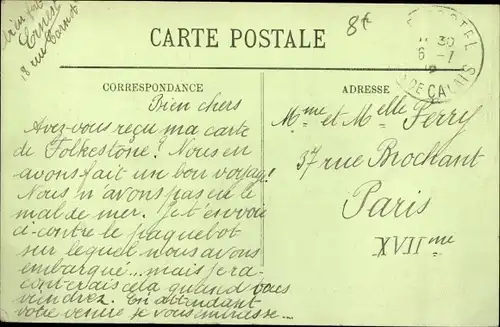 8f
Ernest
18 rue Carnot
CARTE POSTALE
30
6-1
DE CALAIS
CORRESPONDANCE
ADRESSE
Bien chers
Avez-vous reçu ma carte
de Folkestone? Nous en
avons fait un bon voyage!
Nous n'avons pas eu le
mal de mer. Je t'envoie
ci-contre le paquebot
sur lequel nous avons
embarqué... mais je ra-
conterais cela quand vous
viendrez. En attendant
votre venue je vous embrasse...
Mme et Melle Ferry
37 rue Brochant
Paris
XVIIme